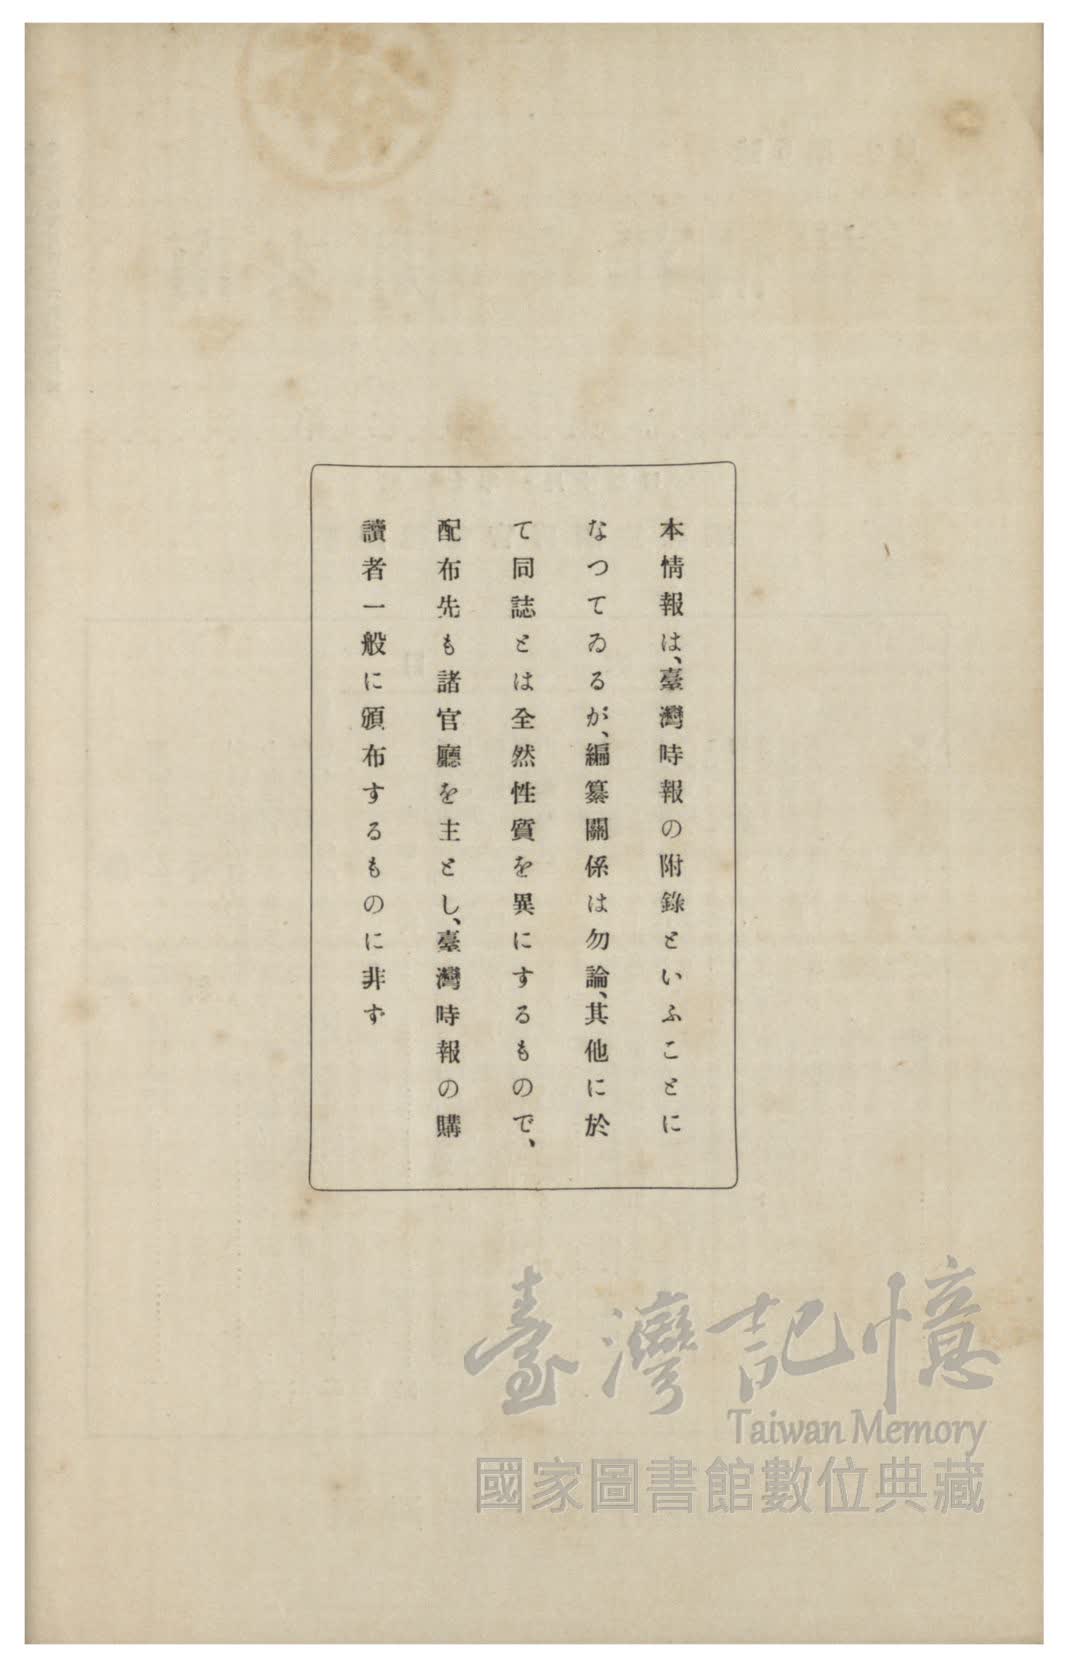 本情報は、臺灣時報の附錄といふことに
なつてゐるが、編纂關係は勿論、其他に於
て同誌とは全然性質を異にするもので、
配布先も諸官廳を主とし、臺灣時報の購
讀者一般に頒布するものに非ず
臺灣記憶
Taiwan Memory
國家圖書館數位典藏